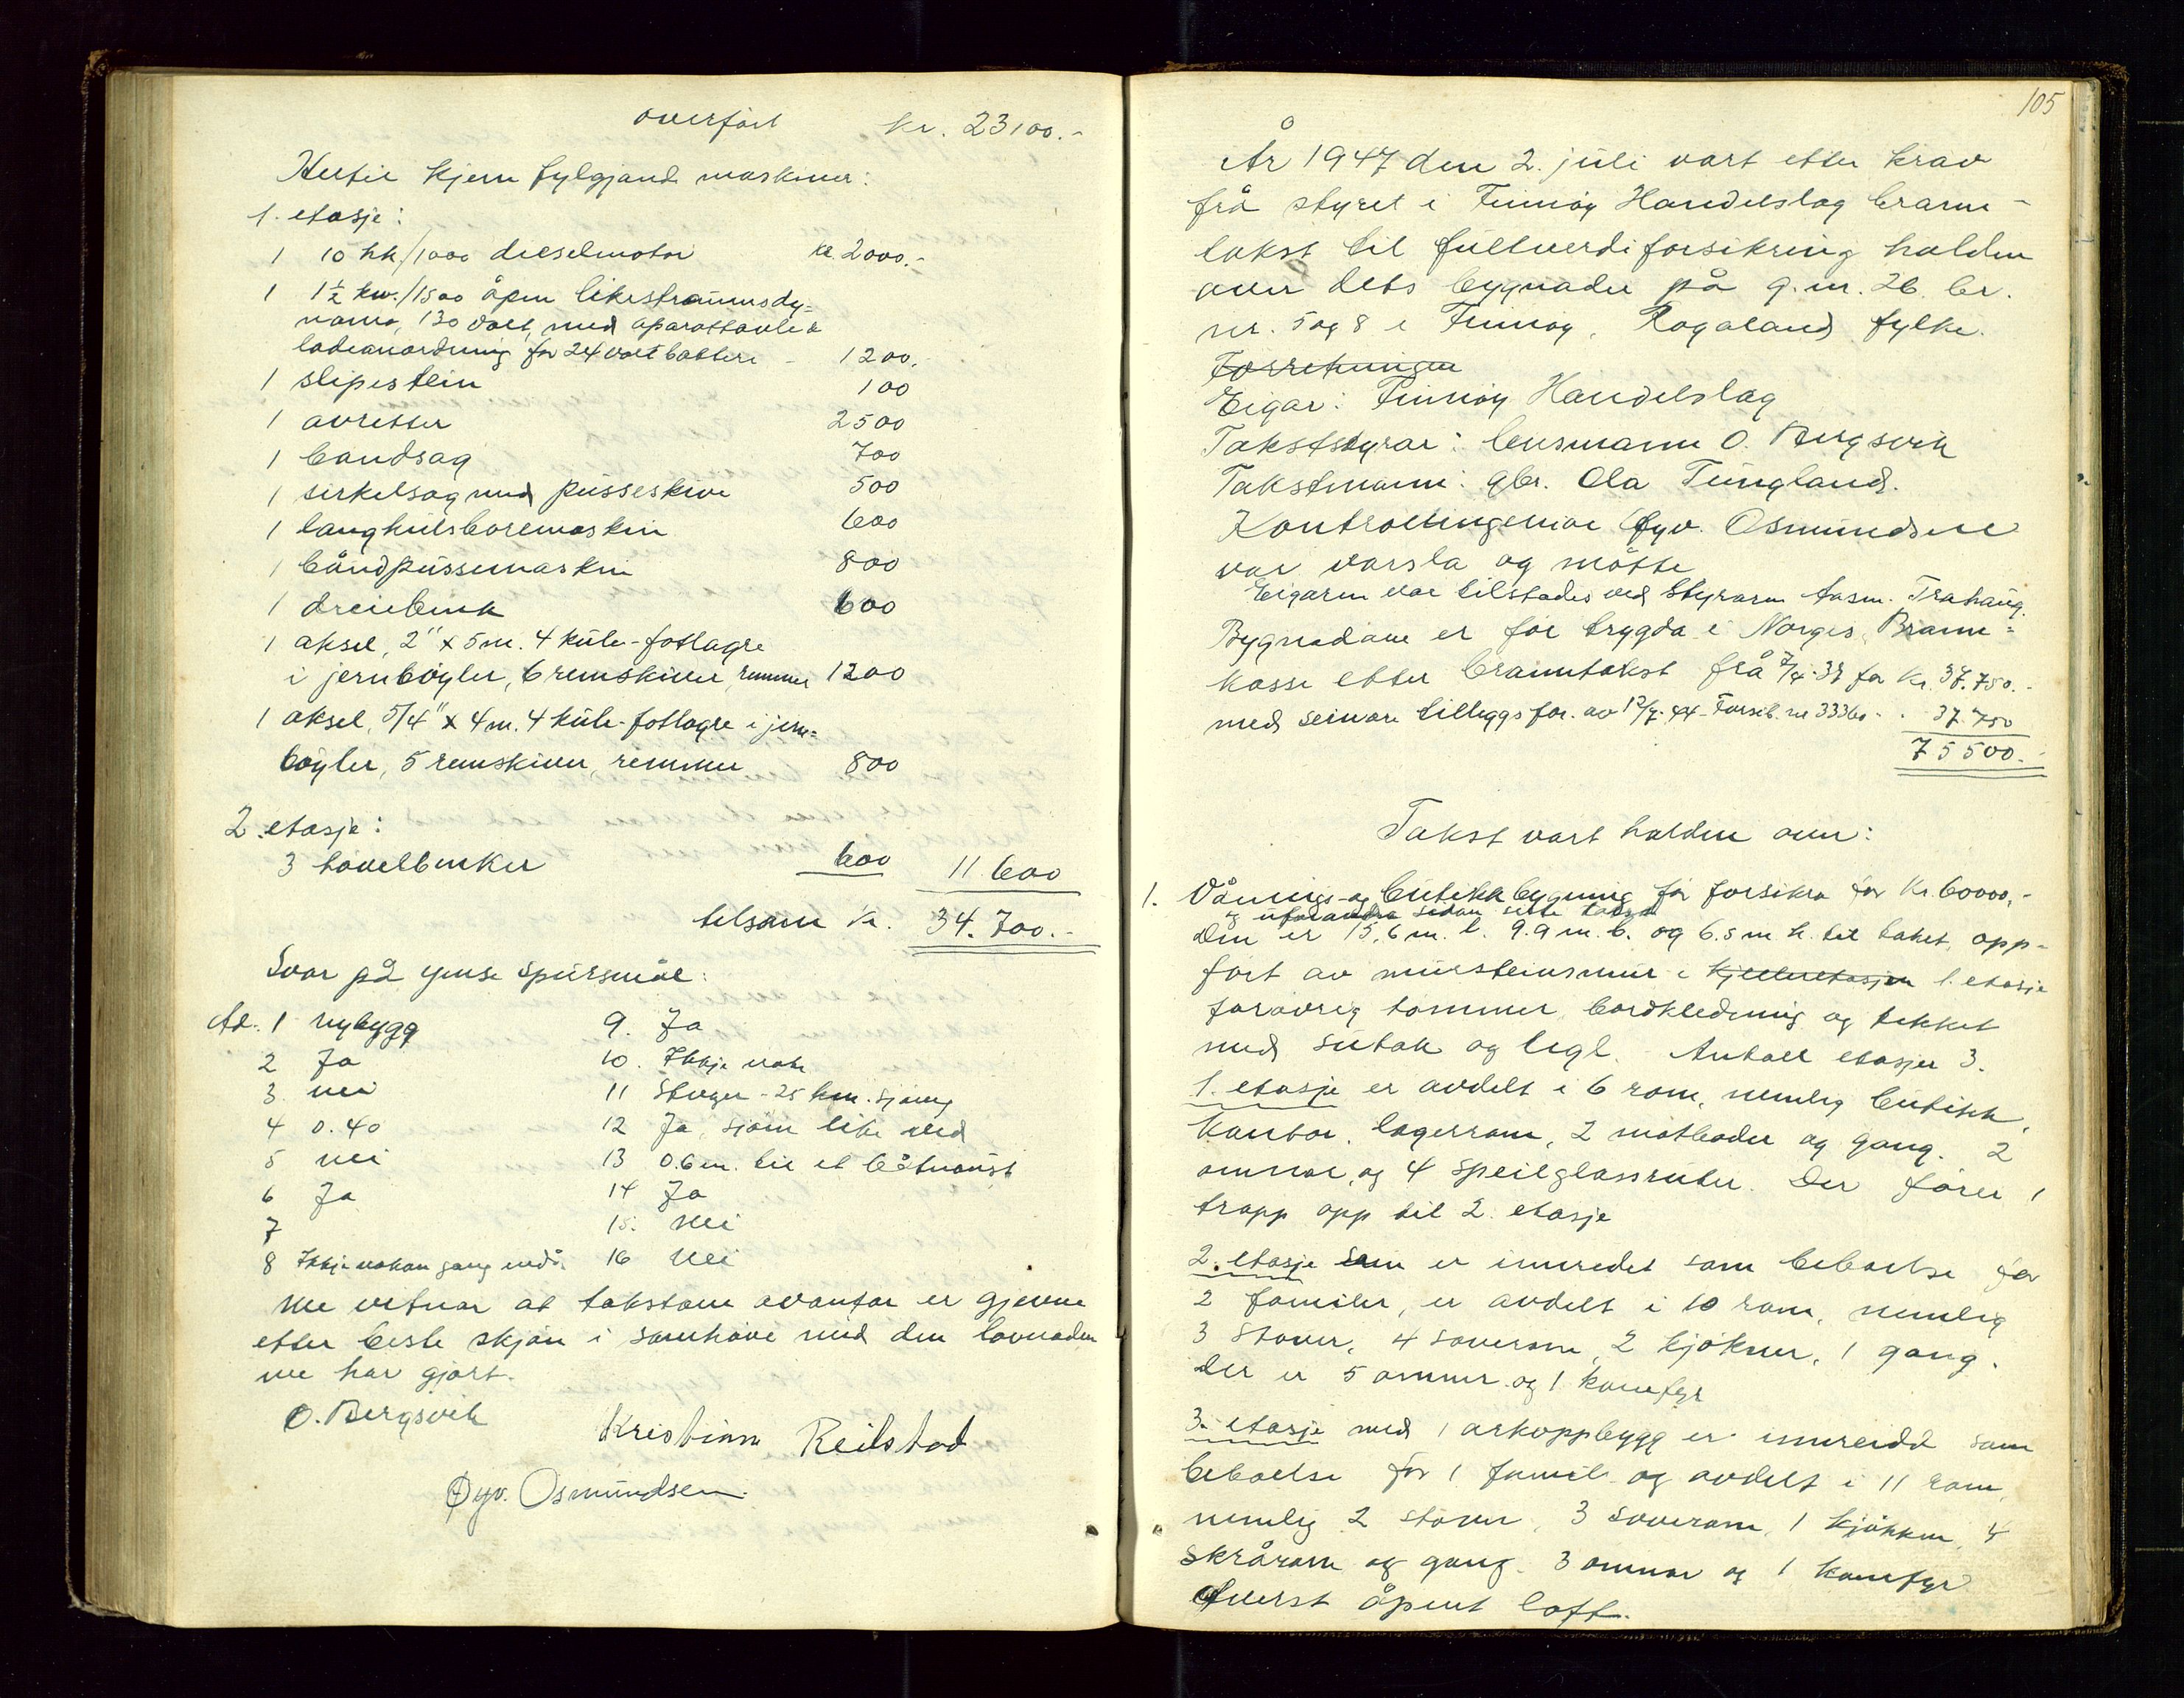 overført kr. 23100.-
Hertil kjem fylgjande maskiner:
1. etasje:
1 10 hk/1000 dieselmotor kr. 2000.-
1 1½ kw./1500 åpen likestraumsdy=
namo, 130 volt, med aparattavle &
ladeanordning for 24 volt batteri - 1200.
1 slipestein 100
1 avretter 2500
1 bandsag 700
1 sirkelsag med pusseskive 500
1 langhulsboremaskin 600
1 båndpussemaskin 800
1 dreiebenk 600
1 aksel, 2" x 5m. 4 kule-fotlagre
i jernbøyler, 6 remskiver, remmer 1200
1 aksel, 5/4" x 4m. 4 kule-fotlagre i jern=
bøyler, 5 remskiver, remmer 800
2. etasje:
3 høvelbenker 600 11 600
tilsam kr. 34.700.-
Svar på ymse spursmål:
Ad. 1 nybygg
2 Ja
3. nei
4 0.40
5 nei
6 Ja
7
8 Ikkje nokon gang endå
9. Ja
10. Ikkje noko
11 Stvgr - 25 km. sjøveg
12 Ja, sjøen like ved
13 0.6 m. til et båtnaust
14 Ja
15. Nei
16 Nei
Me vitnar at takstane ovanfor er gjevne
etter beste skjøn i samhøve med den lovnaden
me har gjort.
O. Bergsvik Kristian Reilstad
Øyv. Osmundsen.
105
År 1947 den 2. juli vart etter krav
frå styret i Finnøy Handelslag brann-
takst til fullverdiforsikring halden
over dets bygnader på g.nr. 26 br.
nr. 5 og 8 i Finnøy, Rogaland fylke.
Forretningen
Eigar: Finnøy Handelslag
Takststyrar: lensmann O. Bergsvik
Takstmann: gbr. Ola Tungland.
Kontrollingeniør Øyv. Osmundsen
var varsla og møtte
Eigaren var tilstades ved styraren Asm. Trahaug.
Bygnadane er før trygda i Norges Brann=
kasse etter branntakst frå 7/4-38 for kr. 37.750.-
med seinare tilleggsfor. av 12/7-44 - Forsik. nr 33360 - . 37.750
75500.-
Takst vart halden over:
1. Vånings- og butikkbygning før forsikra for kr. 60000.-
og uforandra sidan siste takst
Den er 15,6 m. l. 9.9 m. b. og 6.5 m h. til taket, opp-
ført av mursteinsmur i kjelleretasjen 1. etasje
forøvrig tømmer, bordkledning og tekket
med sutak og tegl. Antall etasjer 3.
1. etasje er avdelt i 6 rom, nemlig butikk,
kontor, lagerrom, 2 matboder og gang. 2
omnar, og 4 speilglassruter. Der fører 1
trapp opp til 2. etasje
2. etasje som er innredet som beboelse for
2 familer, er avdelt i 10 rom, nemlig
3 stover, 4 soverom, 2 kjøkner, 1 gang.
der er 5 omner og 1 komfyr
3. etasje med 1 arkoppbygg er innreidd som
beboelse for 1 famili og avdelt i 11 rom,
nemlig 2 stover, 3 soverom, 1 kjøkken, 4
skrårom og gang. 3 omnar og 1 komfyr
Øverst åpent loft.